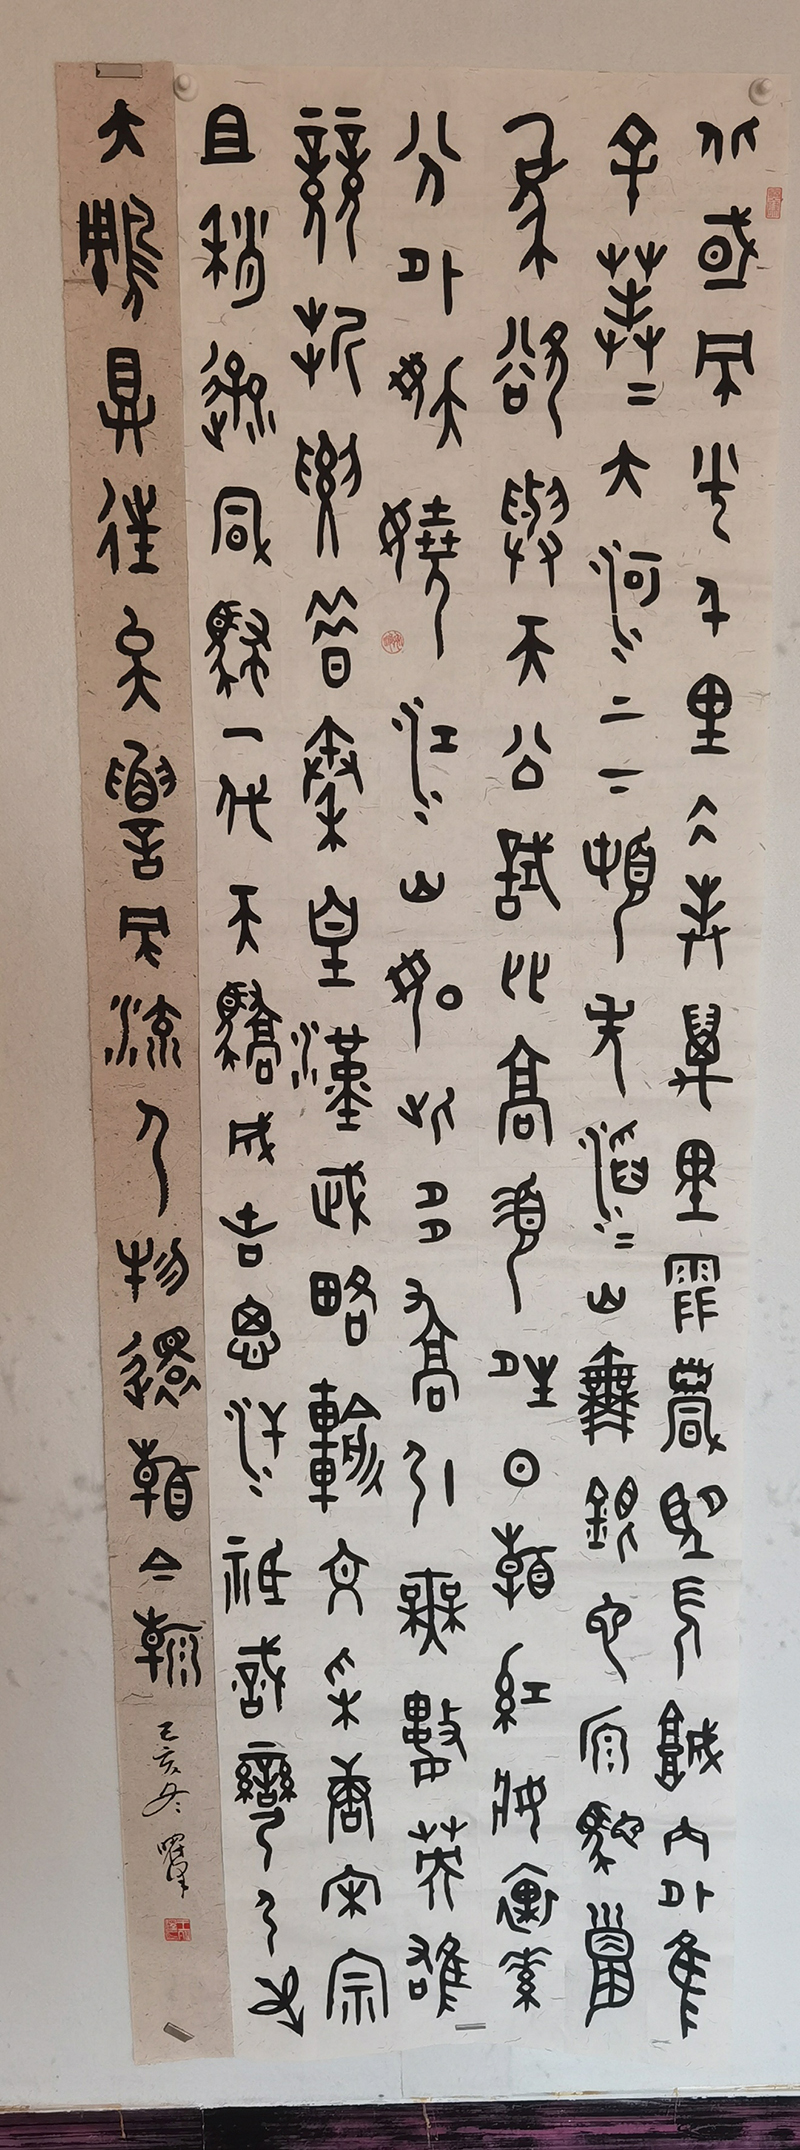 北國風光千里冰封萬里雪飄望長城內外隹
余莽=大河上下頓失滔=山舞銀蛇原馳蠟
象欲與天公試比高須晴日看紅妝裹素
分外妖嬈江山如此多嬌引無數英雄
競折要昔秦皇漢武略輸文采唐宋宗
且稍遜風騷一代天驕成吉思汗祇識彎弓射
大鵰具往矣數風流人物還看今朝
己亥冬